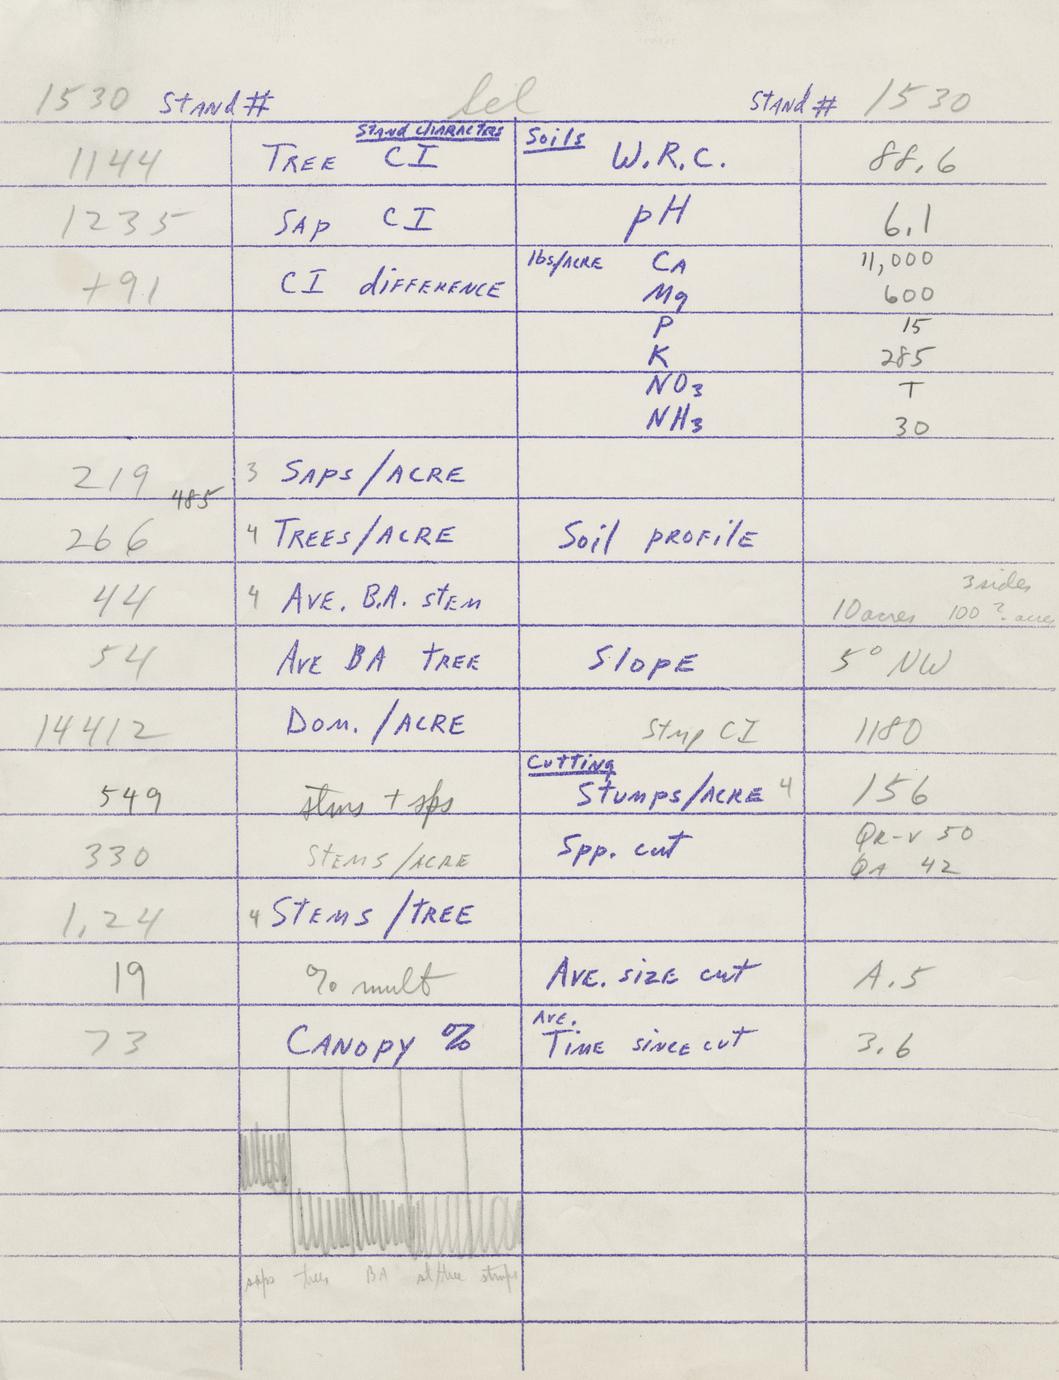 1530 Stand # Sel Stand # 1530
Stand Characters Soils
1144 Tree CI W.R.C. 88.6
1235 Sap CI pH 6.1
+91 CI difference lbs/Acre Ca 11,000
Mg 600
P 15
K 285
NO3 T
NH3 30
219 3 Saps/Acre
485
266 4 Trees/Acre Soil profile
44 4 Ave. B.A. stem 3 sides
10 acres 100? acres
54 Ave BA tree Slope 5° NW
14412 Dom./Acre Stmp CI 1180
Cutting
549 stms + sps Stumps/Acre 4 156
330 Stems/Acre Spp. cut QR-V 50
QA 42
1.24 4 Stems/tree
19 % mult Ave. size cut A.5
Ave.
73 Canopy % Time since cut 3.6
saps trees BA st/tree stmps